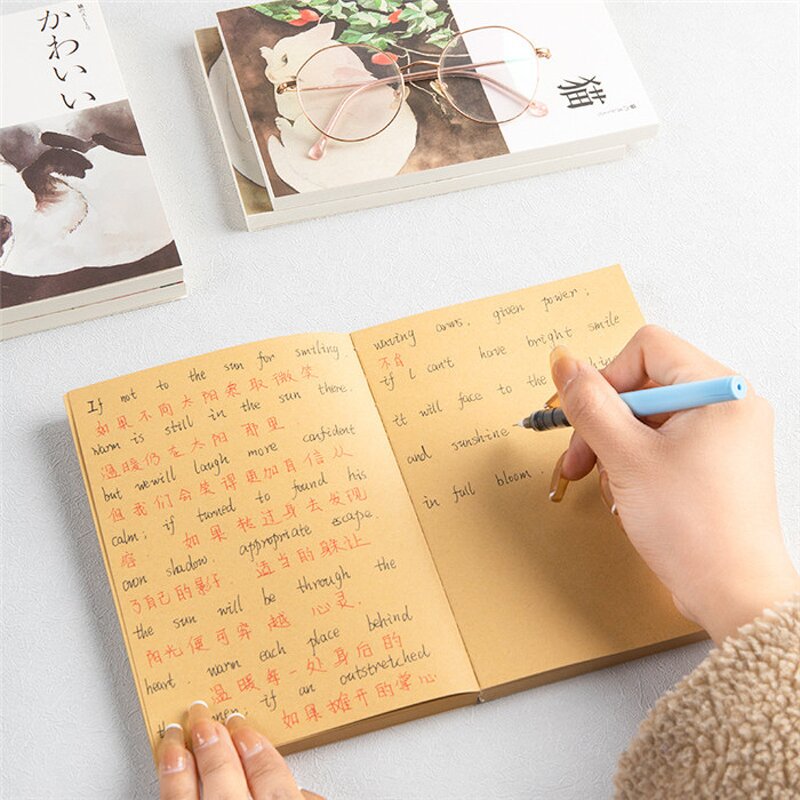 かわいい
猫
If not to the sun for smiling.
如果不向太阳索取微笑
warm is still in the sun there.
温暖仍在太阳那里.
but we will laugh more confident
但我们会笑得更加自信从
calm; if turned to found his
容 如果转过身去发现
own shadow. appropriate escape
了自己的影子 适当的躲让
the sun will be through the
阳光便可穿越 心灵.
heart. warm each place behind
温暖每一处身后的
men; if an outstretched
如果摊开的掌心
waving arms. given power;
不自
if I can't have bright smile
it will face to the
and sunshine
in full bloom.